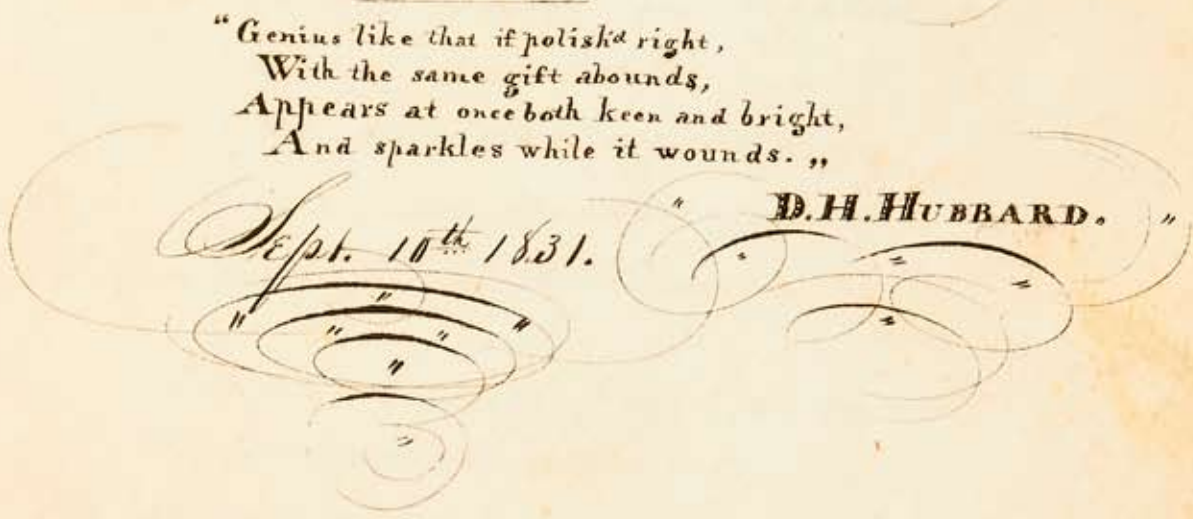 “Genius like that if polish'd right,
With the same gift abounds,
Appears at once both keen and bright,
And sparkles while it wounds.„
D.H.HUBBARD.
Sept. 10th 1831.